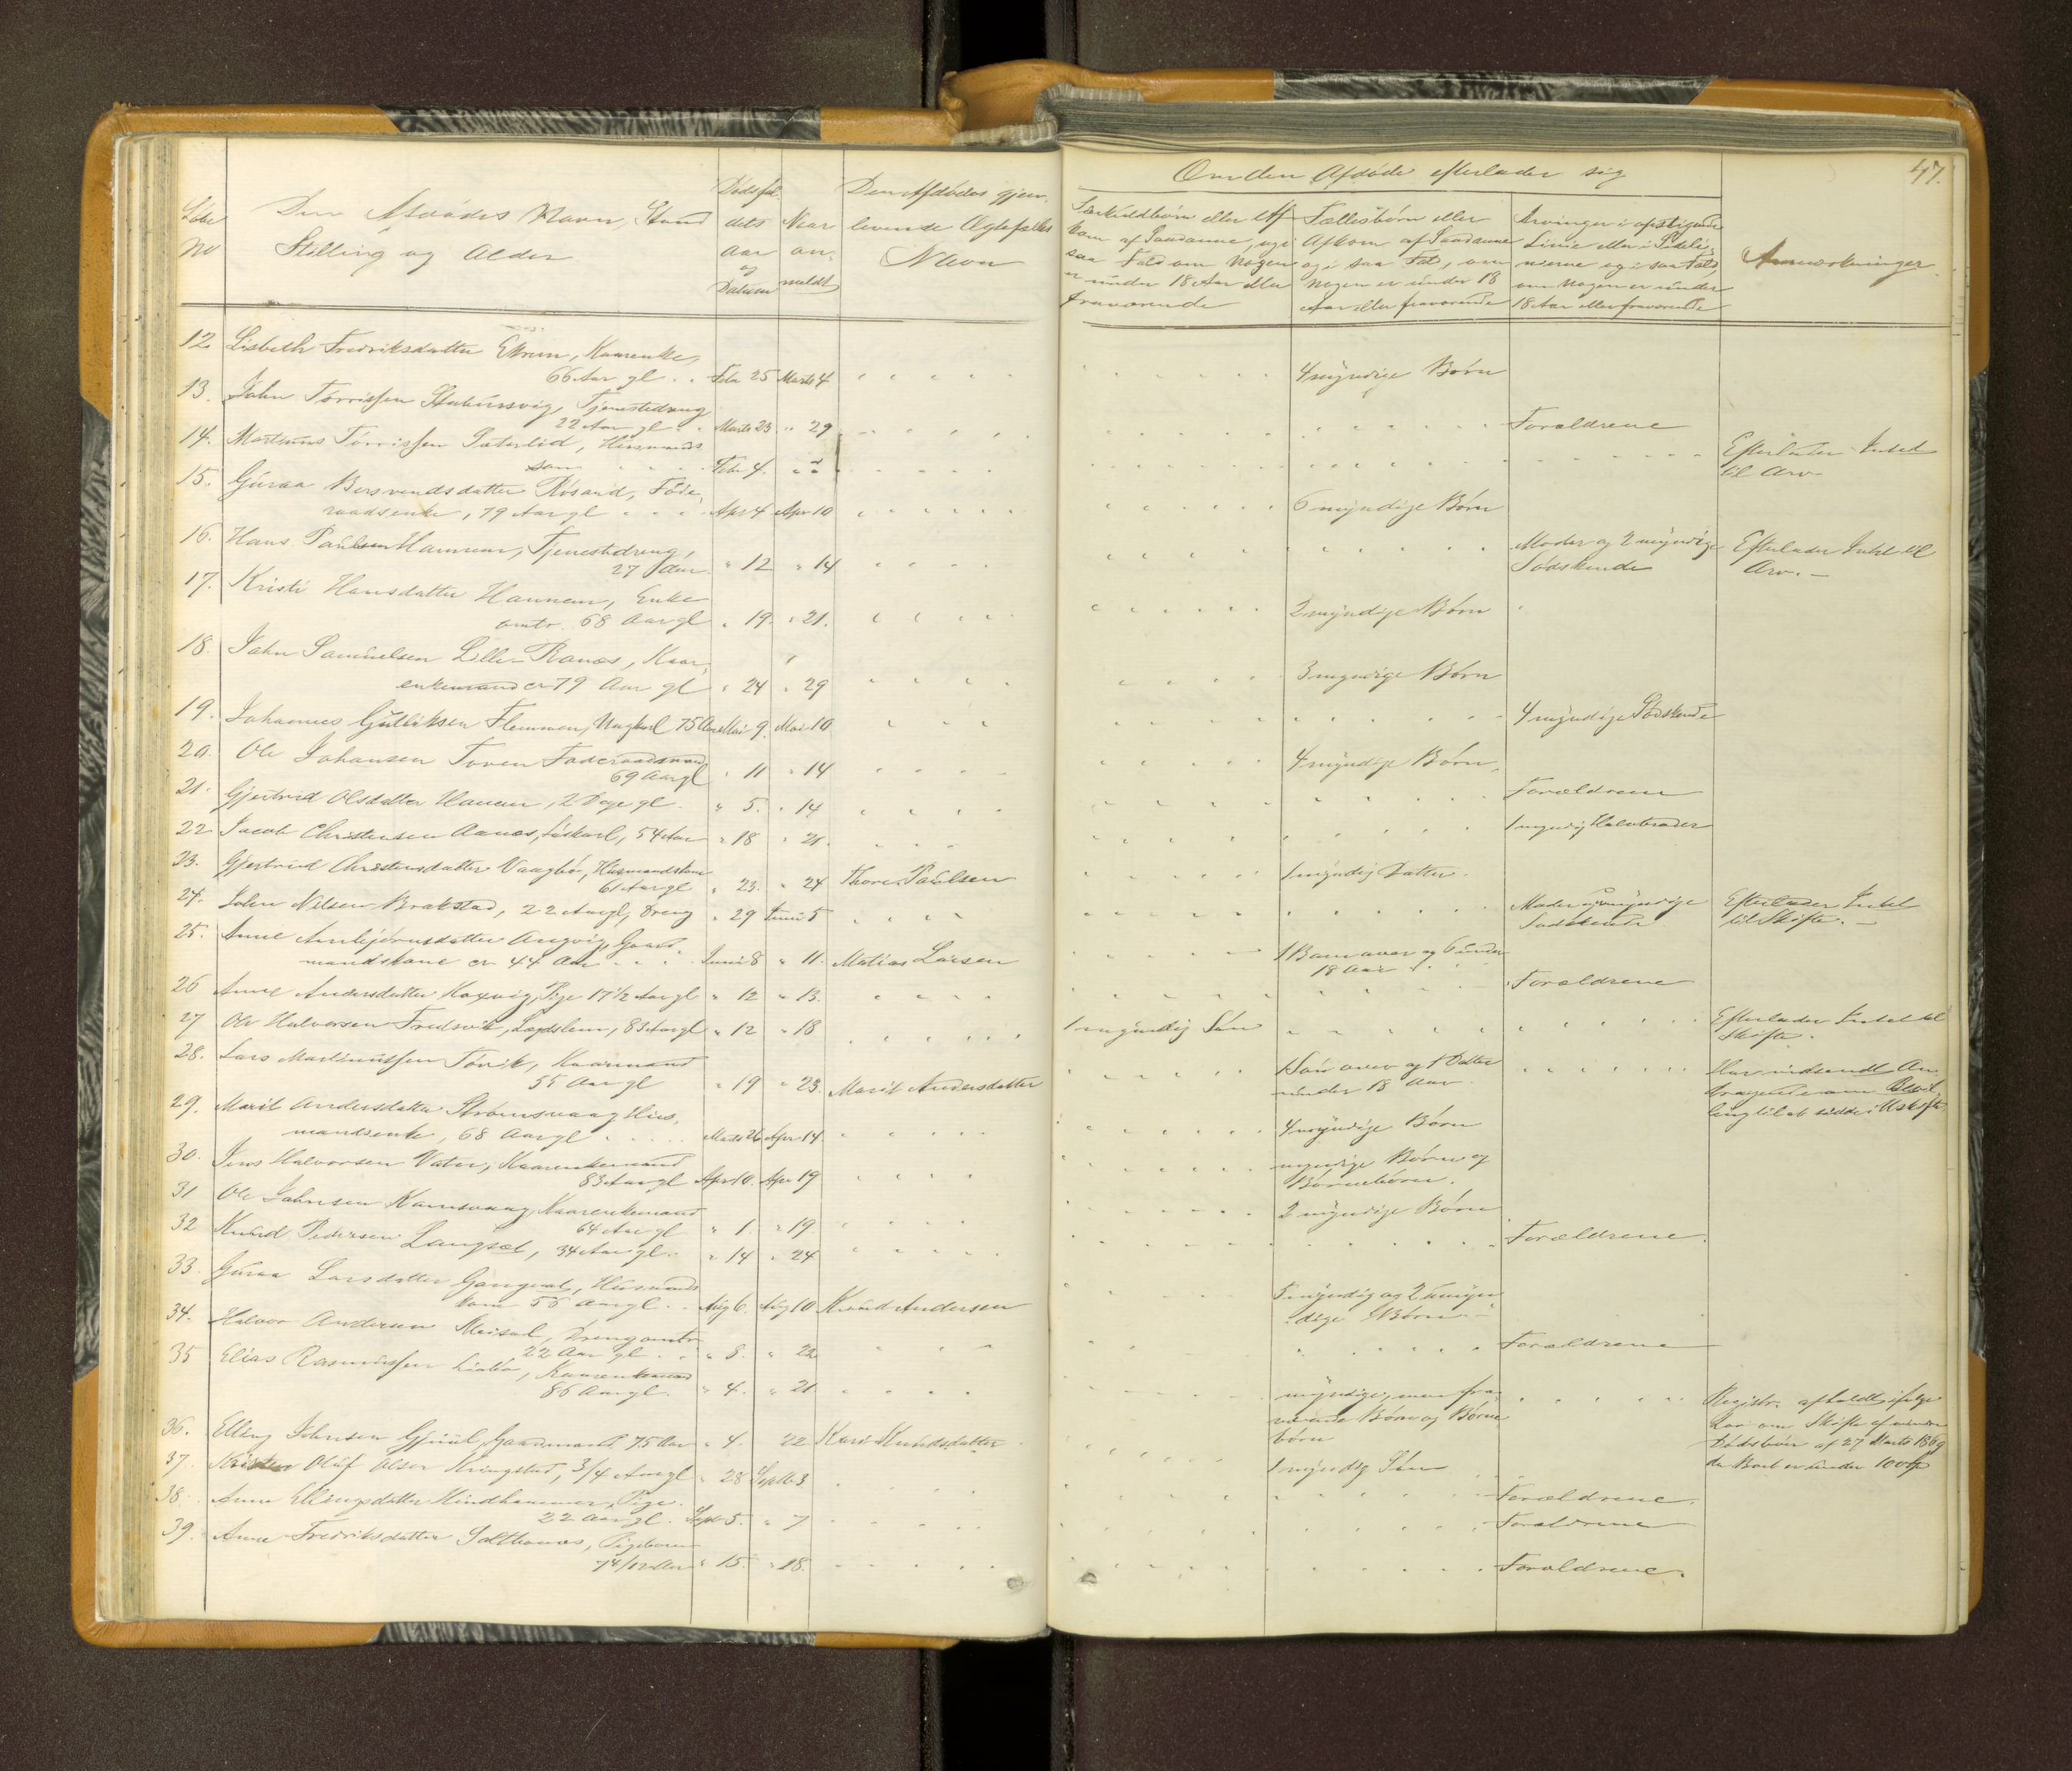 47.
Løbe
No
Den Afdødes Navn, Stand
Stilling og Alder
Dødsfal
dets
Aar
og
Datum
Naar
an-
meldt
Den Afdødes gjen-
levende Ægtefælles
Navn
Om den Afdøde efterlader sig
Særkuldbørn eller Af
kom af Saadanne, og i
saa Fald om Nogen
er under 18 Aar eller
fraværende
Fællesbørn eller
Afkom af Saadanne
og i saa Fald, om
Nogen er under 18
Aar eller fraværende
Arvinger i opstigende
Linie eller i Sideli-
nierne og i saa Fald
om Nogen er under
18 Aar eller fraværende
Anmærkninger
12. Lisbeth Fredriksdatter Ekrem, Kaarenke,
66 Aar gl. Febr 25 Marts 4 4 myndige Børn
13. John Torrissen Tjenestedreng
22 Aar gl. Marts 23 " 29 Forældrene
14. Martinus Torrissen Sæterlid, Husmands
søn Febr 4. Efterlader Intet
til Arv
15. Guraa Bersvendsdatter Røsand, Føde-
raadsenke, 79 Aar gl Apr 4 Apr 10 6 myndige Børn
16. Hans Paulsen Hannem, Tjenestedreng,
27 Aar " 12 " 14 Moder og 2 myndige Efterlader Intet til
Sødskende Arv. —
17. Kristi Hansdatter Hannem, Enke
omtr. 68 Aar gl " 19. " 21. 2 myndige Børn
18. John Samuelsen Lille-Ranæs, Kaar-
enkemand er 79 Aar gl " 24 " 29 3 myndige Børn
19. Johannes Gulliksen Flemmen, Ungkarl 75 Aar Mai 9. Mai 10 4 myndige Sødskende
20. Ole Johansen Toven Føderaadsmand
69 Aar gl " 11 " 14 4 myndige Børn.
21. Gjertrud Olsdatter Hanem, 2 Dage gl. " 5. " 14 Forældrene
22 Jacob Christensen Aanæs, Løskarl, 54 Aar " 18 " 21. 1 myndig Halvbroder
23. Gjertrud Christensdatter Vaagbø, Husmandskone
61 Aar gl " 23. " 24 Thore Paulsen 1 myndig Datter.
24. John Nilsen Brakstad, 22 Aar gl, Dreng " 29 Juni 5 Moder og myndige Efterlader Intet
Sødskende til Skifte. —
25. Anne Arnbjørnsdatter Angvig, Gaard-
mandskone er 44 Aar Juni 8 " 11. Matias Larsen 1 Barn over og 6 under
18 Aar
26 Anne Andersdatter Hoxvig, Pige 17½ Aar gl " 12 " 13. Forældrene
27 Ole Halvorsen Fredsvik, Lægdslem, 83 Aar gl " 12 " 18 1 myndig Søn Efterlader Intet til
Skifte.
28. Lars Martinussen Torvik, Kaarmand
55 Aar gl " 19 " 23. Marit Andersdatter 1 Søn over og 1 Datter
under 18 Aar. Har indsendt An-
dragende om Bevil-
ling til at sidde i Uskifte
29. Marit Andersdatter Strømsvaag Hus-
mandsenke, 68 Aar gl Marts 26 Apr 14. 4 myndige Børn
30. Jens Halvorsen Vatn, Kaarenkemand
83 Aar gl Apr 10. Apr 19 myndige Børn og
Børnebørn.
31 Ole Johnsen Kamsvaag, Kaarenkemand
64 Aar gl " 1. " 19. 2 myndige Børn
32 Knud Pedersen Langsæt, 34 Aar gl. " 14 " 24 Forældrene.
33. Guraa Larsdatter Husmands
kone 56 Aar gl. Aug 6. Aug 10 Knud Andersen 5 myndig og 2 umyn
dige Børn
34. Halvor Andersen Meisal, Dreng omtr
22 Aar gl " 8. " 22 Forældrene
35 Elias Rasmussen Liabø, Kaarenkemand
86 Aar gl. " 4. " 21. myndige, men fra-
værende Børn og Børne
børn Registr. afholdt ifølge
Lov om Skifte af mindre
Dødsboer af 27 Marts 1869
da Boet er under 100 Sp
36. Elling Johnsen Gjuul, Gaardmand, 75 Aar " 4. 22 Kari Knudsdatter 1 myndig Søn
37. Oluf Olsen Kringstad, 3/4 Aar gl " 28 Septb 3 Forældrene.
38. Anne Ellingsdatter Hindhammer, Pige.
22 Aar gl. Sept 5. " 7 Forældrene
39. Anne Fredriksdatter Solthomæs, Pigebarn
7 4/12 Aar " 15. " 18. Forældrene.